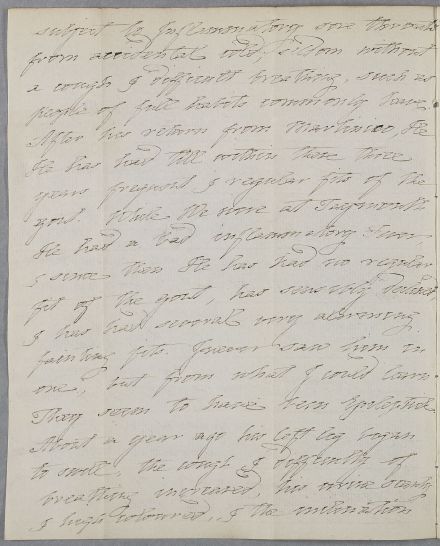 subject to Inflammatory sore throats
from accidental cold, seldom without
a cough & difficult breathing, such as
people of full habits commonly have.
After his return from Martinico, He
He has had till within these three
years frequent & regular fits of the
gout. While We were at Taymouth
He had a bad inflammatory Fever,
& since then He has had no regular
fit of the gout, has sensibly declined
& has had several very alarming
fainting fits. I never saw him in
one, but from what I could learn
They seem to have been Epileptick
About a year ago his left leg began
to swell, the cough & difficulty of
breathing increased, his urine scanty
& high coloured, & the inclination